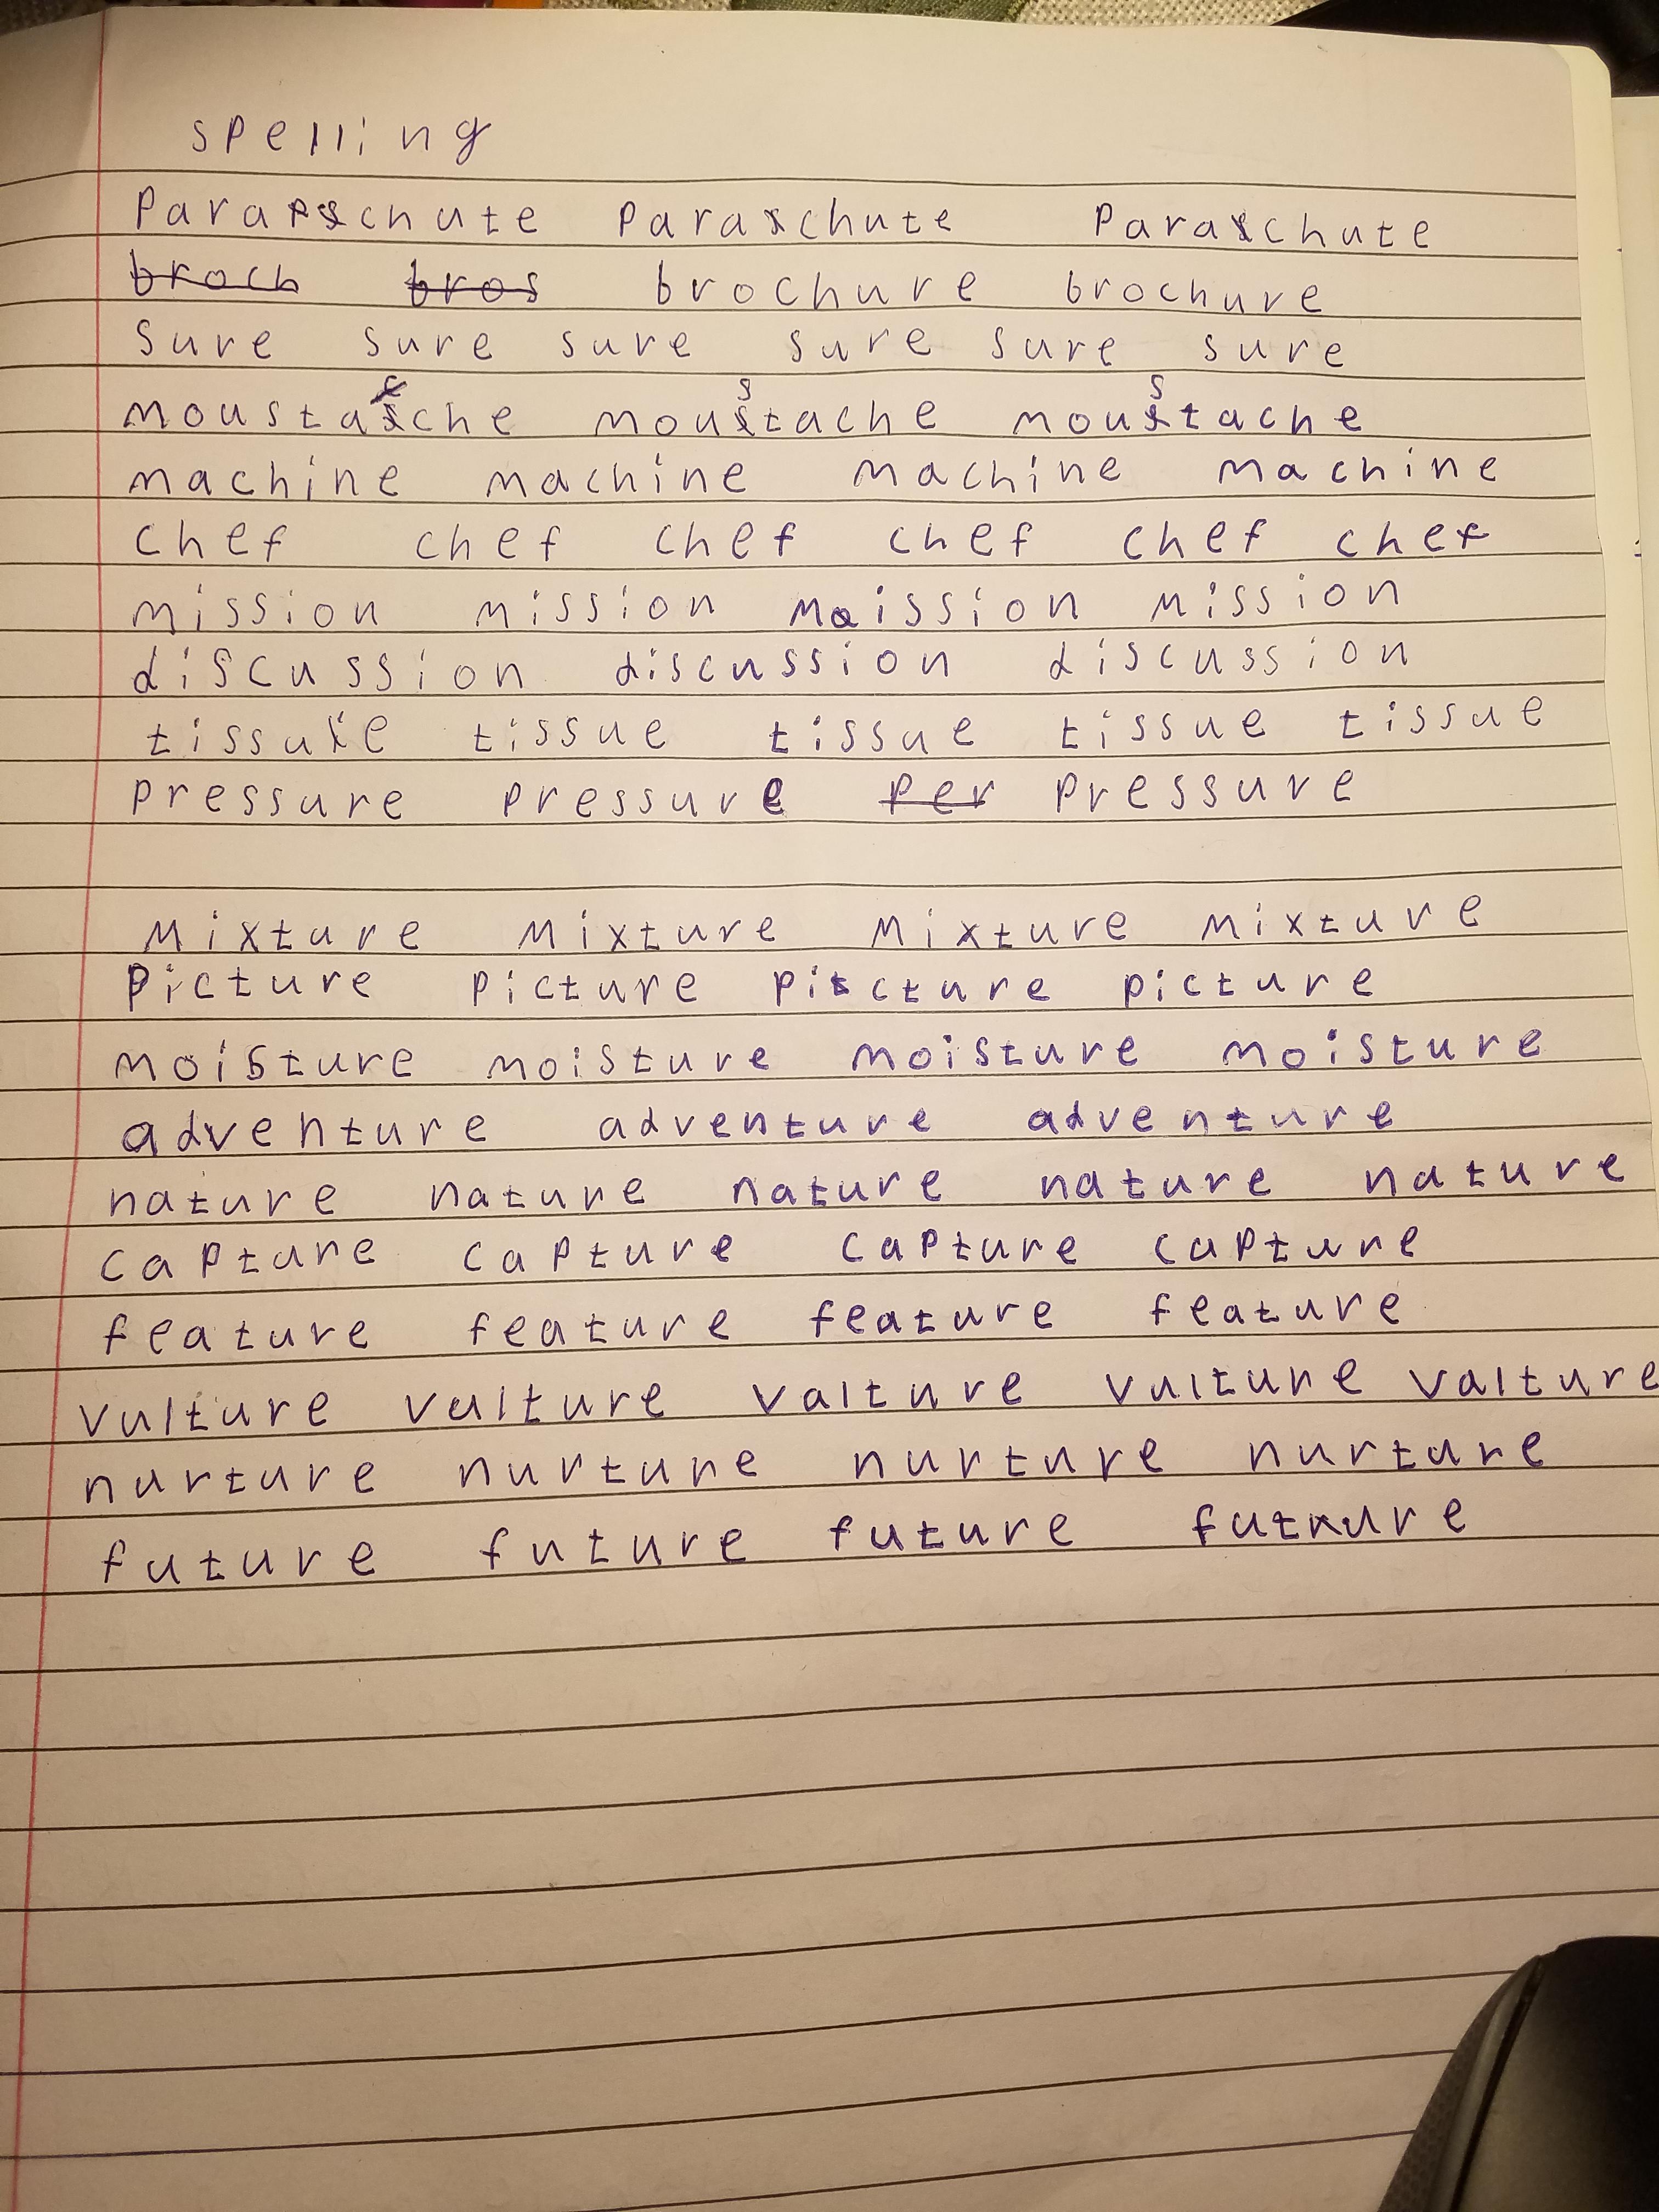 spelling
parachute parachute parachute
broch bros brochure brochure
sure sure sure sure sure sure
moustache moustache moustache
machine machine machine machine
chef chef chef chef chef chef
mission mission mission mission
discussion discussion discussion
tissue tissue tissue tissue tissue
pressure pressure per pressure
mixture mixture mixture mixture
picture picture picture picture
moisture moisture moisture moisture
adventure adventure adventure
nature nature nature nature nature
capture capture capture capture
feature feature feature feature
vulture vulture vulture vulture vulture
nurture nurture nurture nurture
future future future future